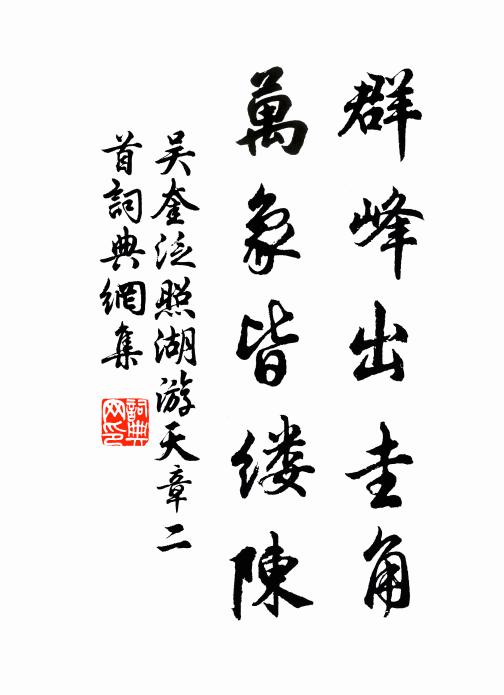 群峰出圭角
萬象皆缕陳
吴奎泛照湖游天章二
首詞典網集
詞典网印